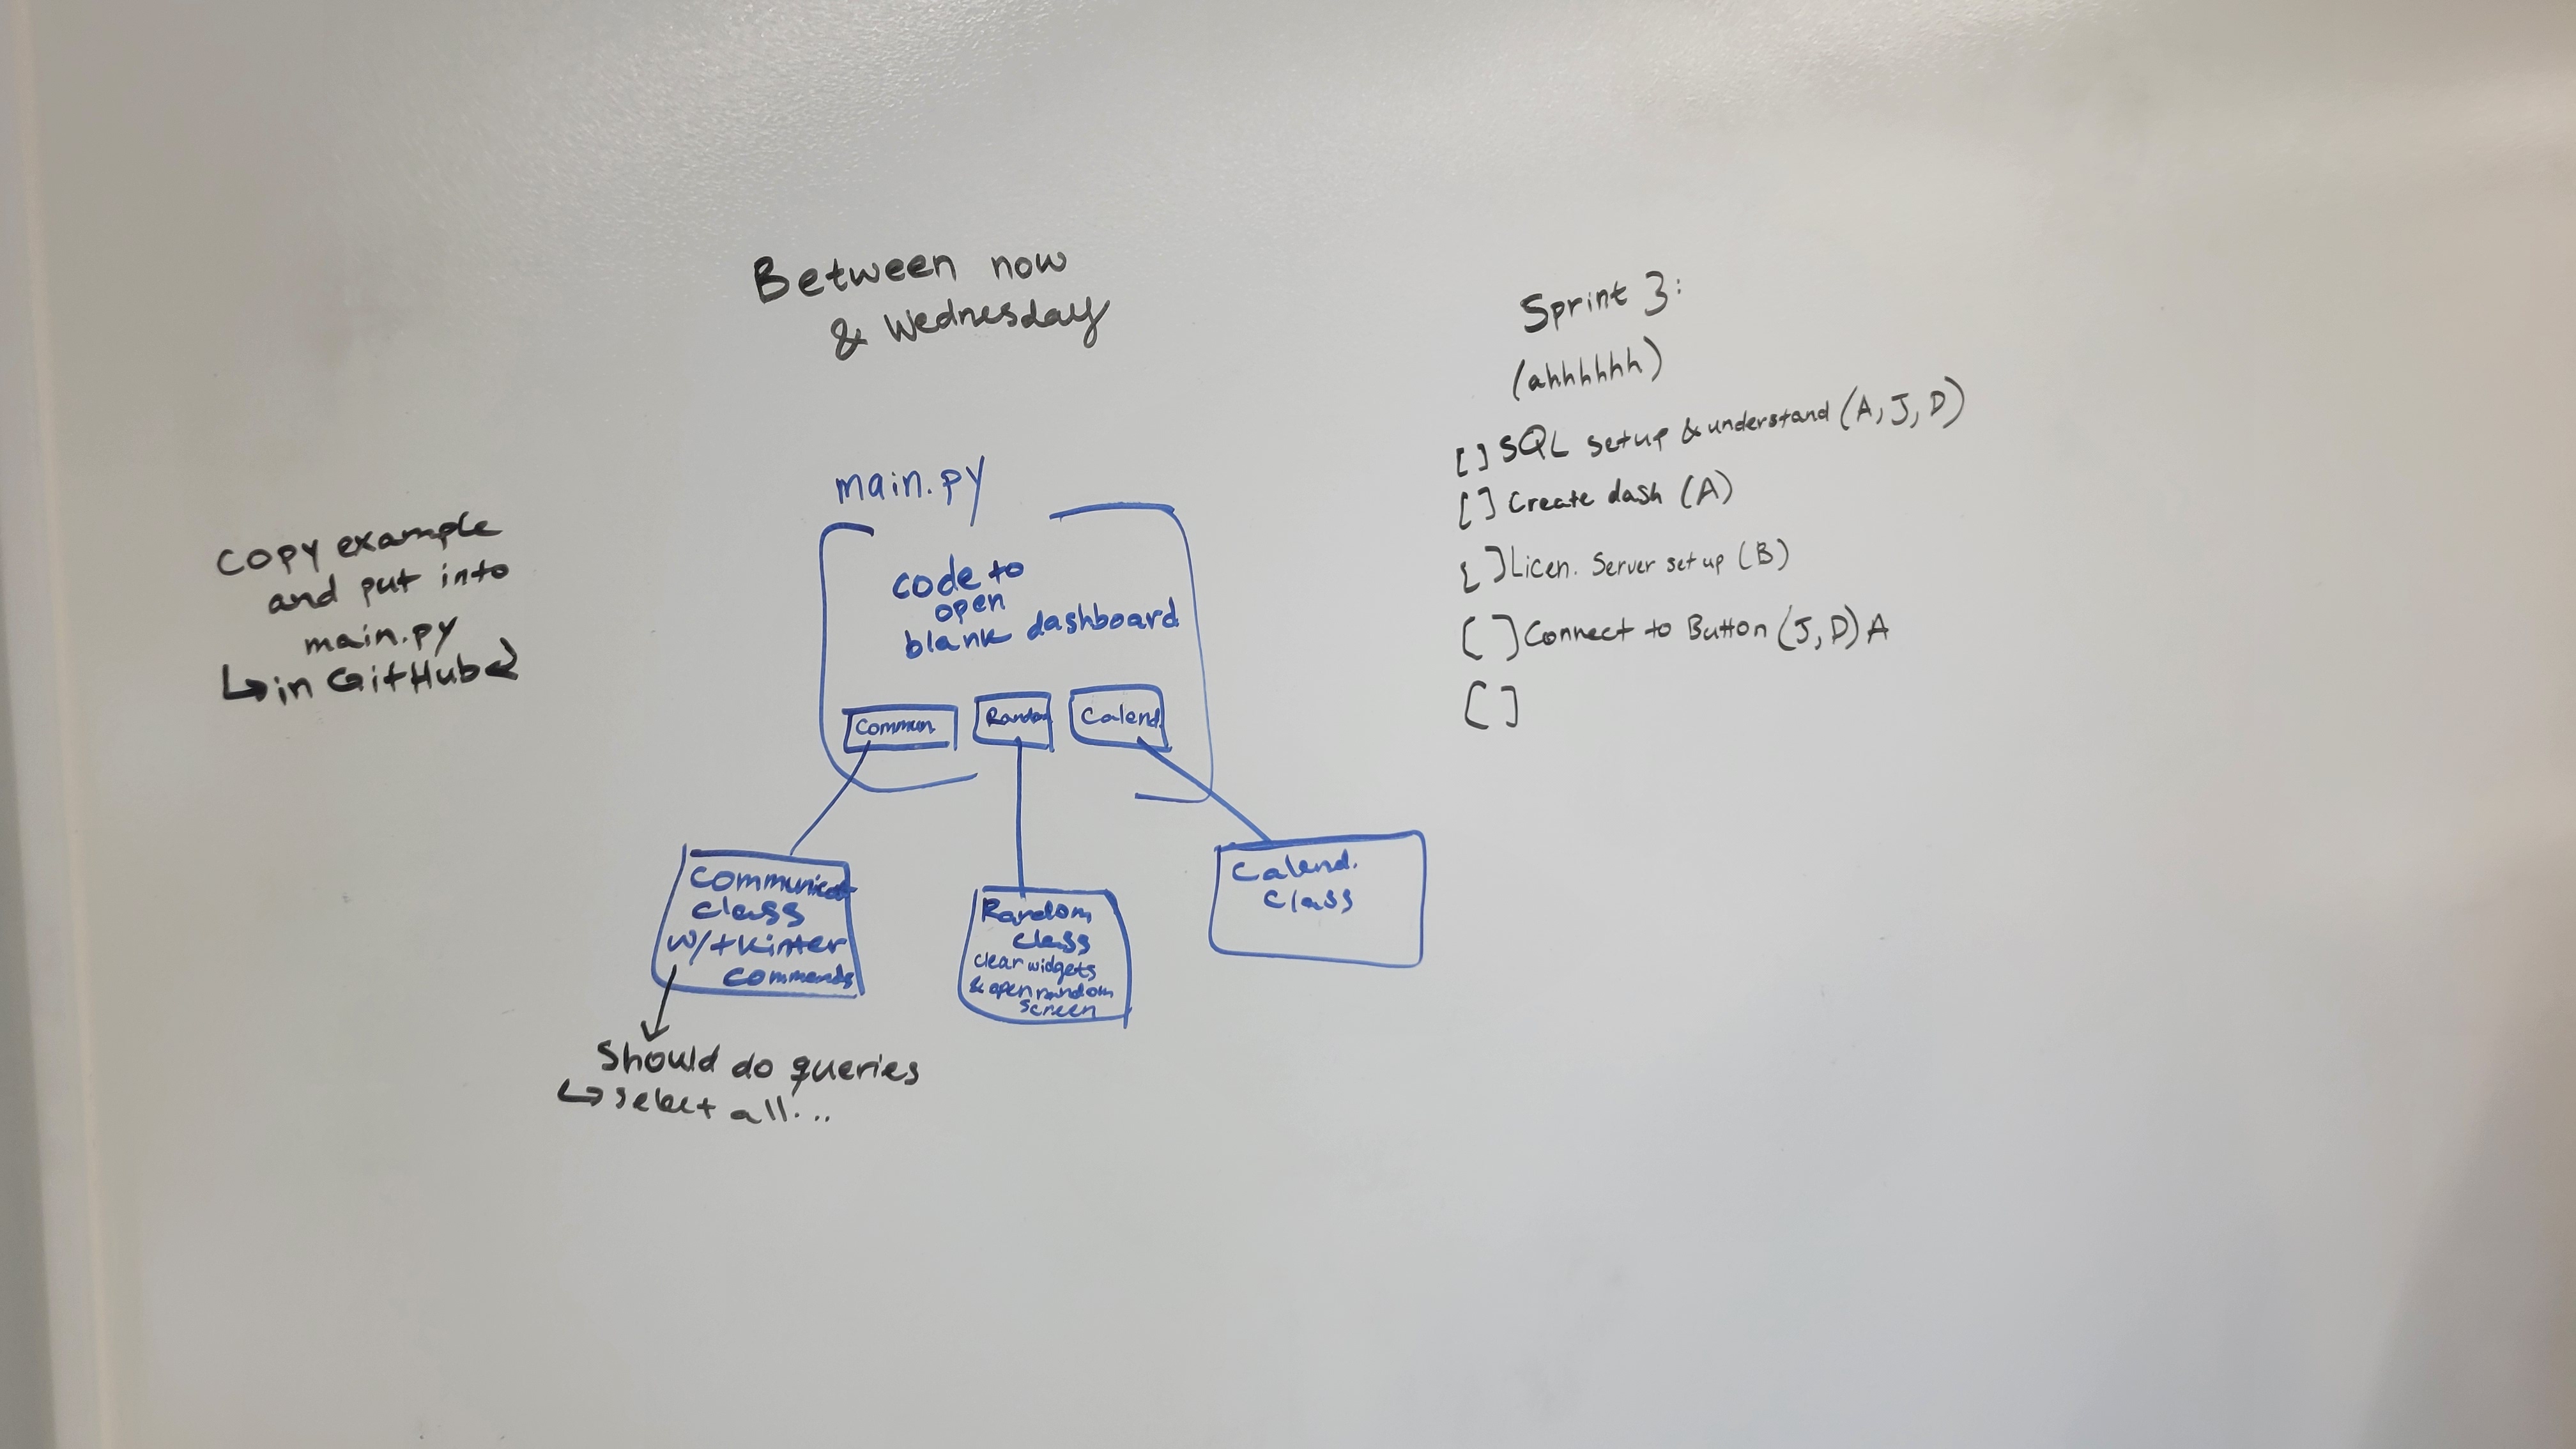 Between now
& Wednesday
Copy example
and put into
main.py
↳ in GitHub
main.py
code to
open
blank dashboard
Commun.
Random
Calend.
Communicat
class
w/tkinter
commands
Should do queries
↳ select all...
Random
class
clear widgets
& open random
screen
Calend.
class
Sprint 3:
(ahhhhhh)
[] SQL setup & understand (A, J, D)
[] Create dash (A)
[] Licen. Server set up (B)
[] Connect to Button (J, D) A
[]